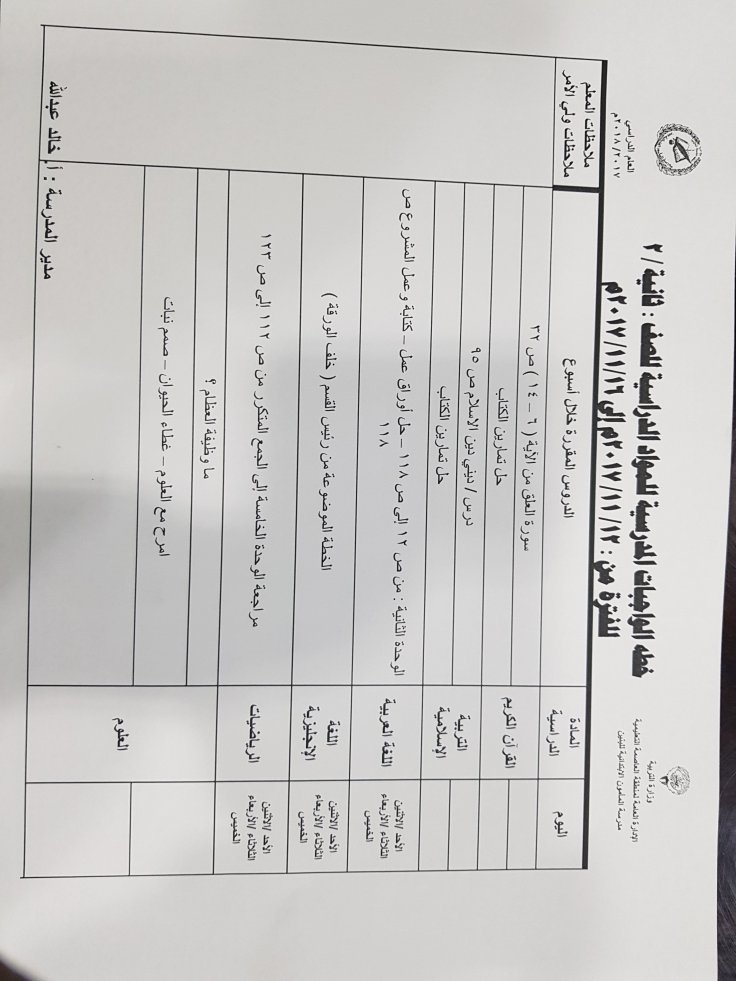 وزارة التربية
الإدارة العامة لمنطقة العاصمة التعليمية
مدرسة المأمون الابتدائية للبنين
العام الدراسي
٢٠١٨/٢٠١٧م
خطه الواجبات المدرسية للمواد الدراسية للصف : ثانية / ٢
للفترة من : ٢٠١٧/١١/١٢م إلى ٢٠١٧/١١/١٦م
اليوم
المادة الدراسية
الدروس المقررة خلال أسبوع
ملاحظات المعلم
ملاحظات ولي الأمر
القرآن الكريم
سورة العلق من الآية ( ٦ – ١٤ ) ص ٣٢
حل تمارين الكتاب
التربية الإسلامية
درس / ديني دين الاسلام ص ٩٥
حل تمارين الكتاب
الأحد /الاثنين
الثلاثاء /الأربعاء
الخميس
اللغة العربية
الوحدة الثانية : من ص ١٢ إلى ص ١١٨ – حل أوراق عمل – كتابة وعمل المشروع ص
١١٨
الأحد /الاثنين
الثلاثاء /الأربعاء
الخميس
اللغة الإنجليزية
الخطة الموضوعة من رئيس القسم ( خلف الورقة )
الأحد /الاثنين
الثلاثاء /الأربعاء
الخميس
الرياضيات
مراجعة الوحدة الخامسة إلى الجمع المتكرر من ص ١١٢ إلى ص ١٢٣
العلوم
ما وظيفة العظام ؟
امرح مع العلوم – غطاء الحيوان – صمم نبات
مدير المدرسة : أ. خالد عبدالله